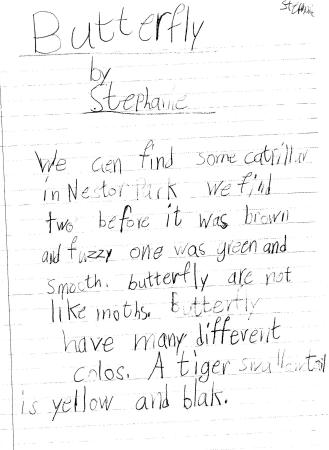 Stephanie
Butterfly
by
Stephanie
We can find some catrillar
in Nestor Park we find
two before it was brown
and fuzzy one was green and
smooth. butterfly are not
like moths. Butterfly
have many different
colos. A tiger swallowtail
is yellow and blak.